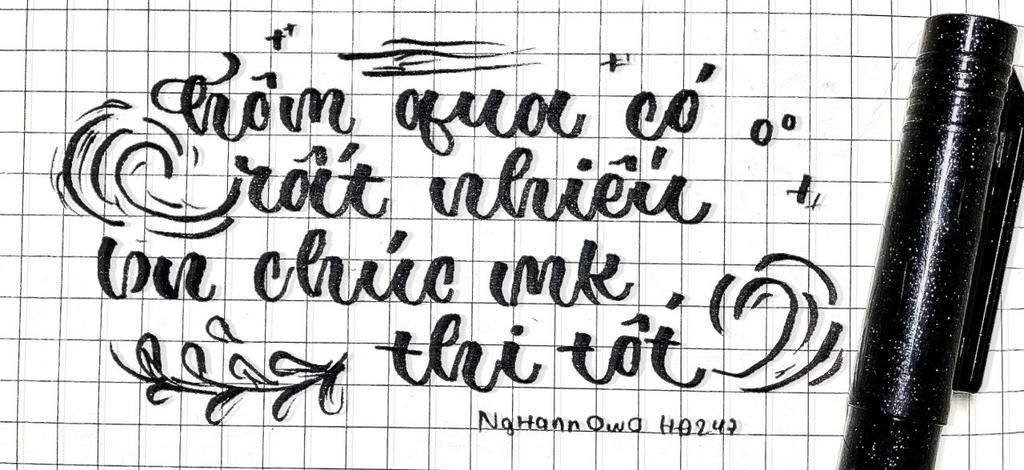 hôm qua có
rất nhiều
bn chúc mk
thi tốt
NgHann OwO HA247